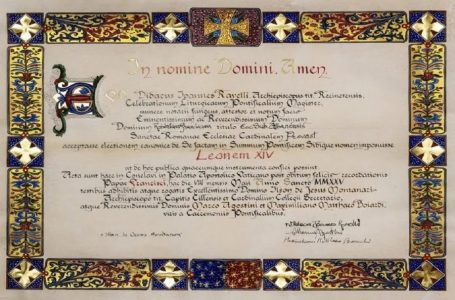 In nomine Domini. Amen.
Ego Didacus Ioannes Ravelli Archiepiscopus tit. Recinetensis,
Celebrationum Liturgicarum Pontificalium Magister,
munere notarii fungens, attestor et notum facio
Eminentissimum ac Reverendissimum Dominum
Dominum titulo
Sanctae Romanae Ecclesiae Cardinalem Prevost
acceptasse electionem canonice de se factam in Summum Pontificem sibique nomen imposuisse
Leonem XIV
ut de hoc publica quaecumque instrumenta confici possint
Acta sunt haec in Conclavi in Palatio Apostolico Vaticano post obitum felicis recordationis
Papae Francisci, hac die VIII mensis Maii Anno Sancto MMXXV
testibus adhibitis atque rogatis Excellentissimo Domino Ilson de Jesus Montanari
Archiepiscopo tit. Capitis Cillensis et Cardinalium Collegii Secretario,
atque Reverendissimis Dominis Marco Agostini et Maximiliano Matthaeo Boiardi,
viris a Caeremoniis Pontificalibus.